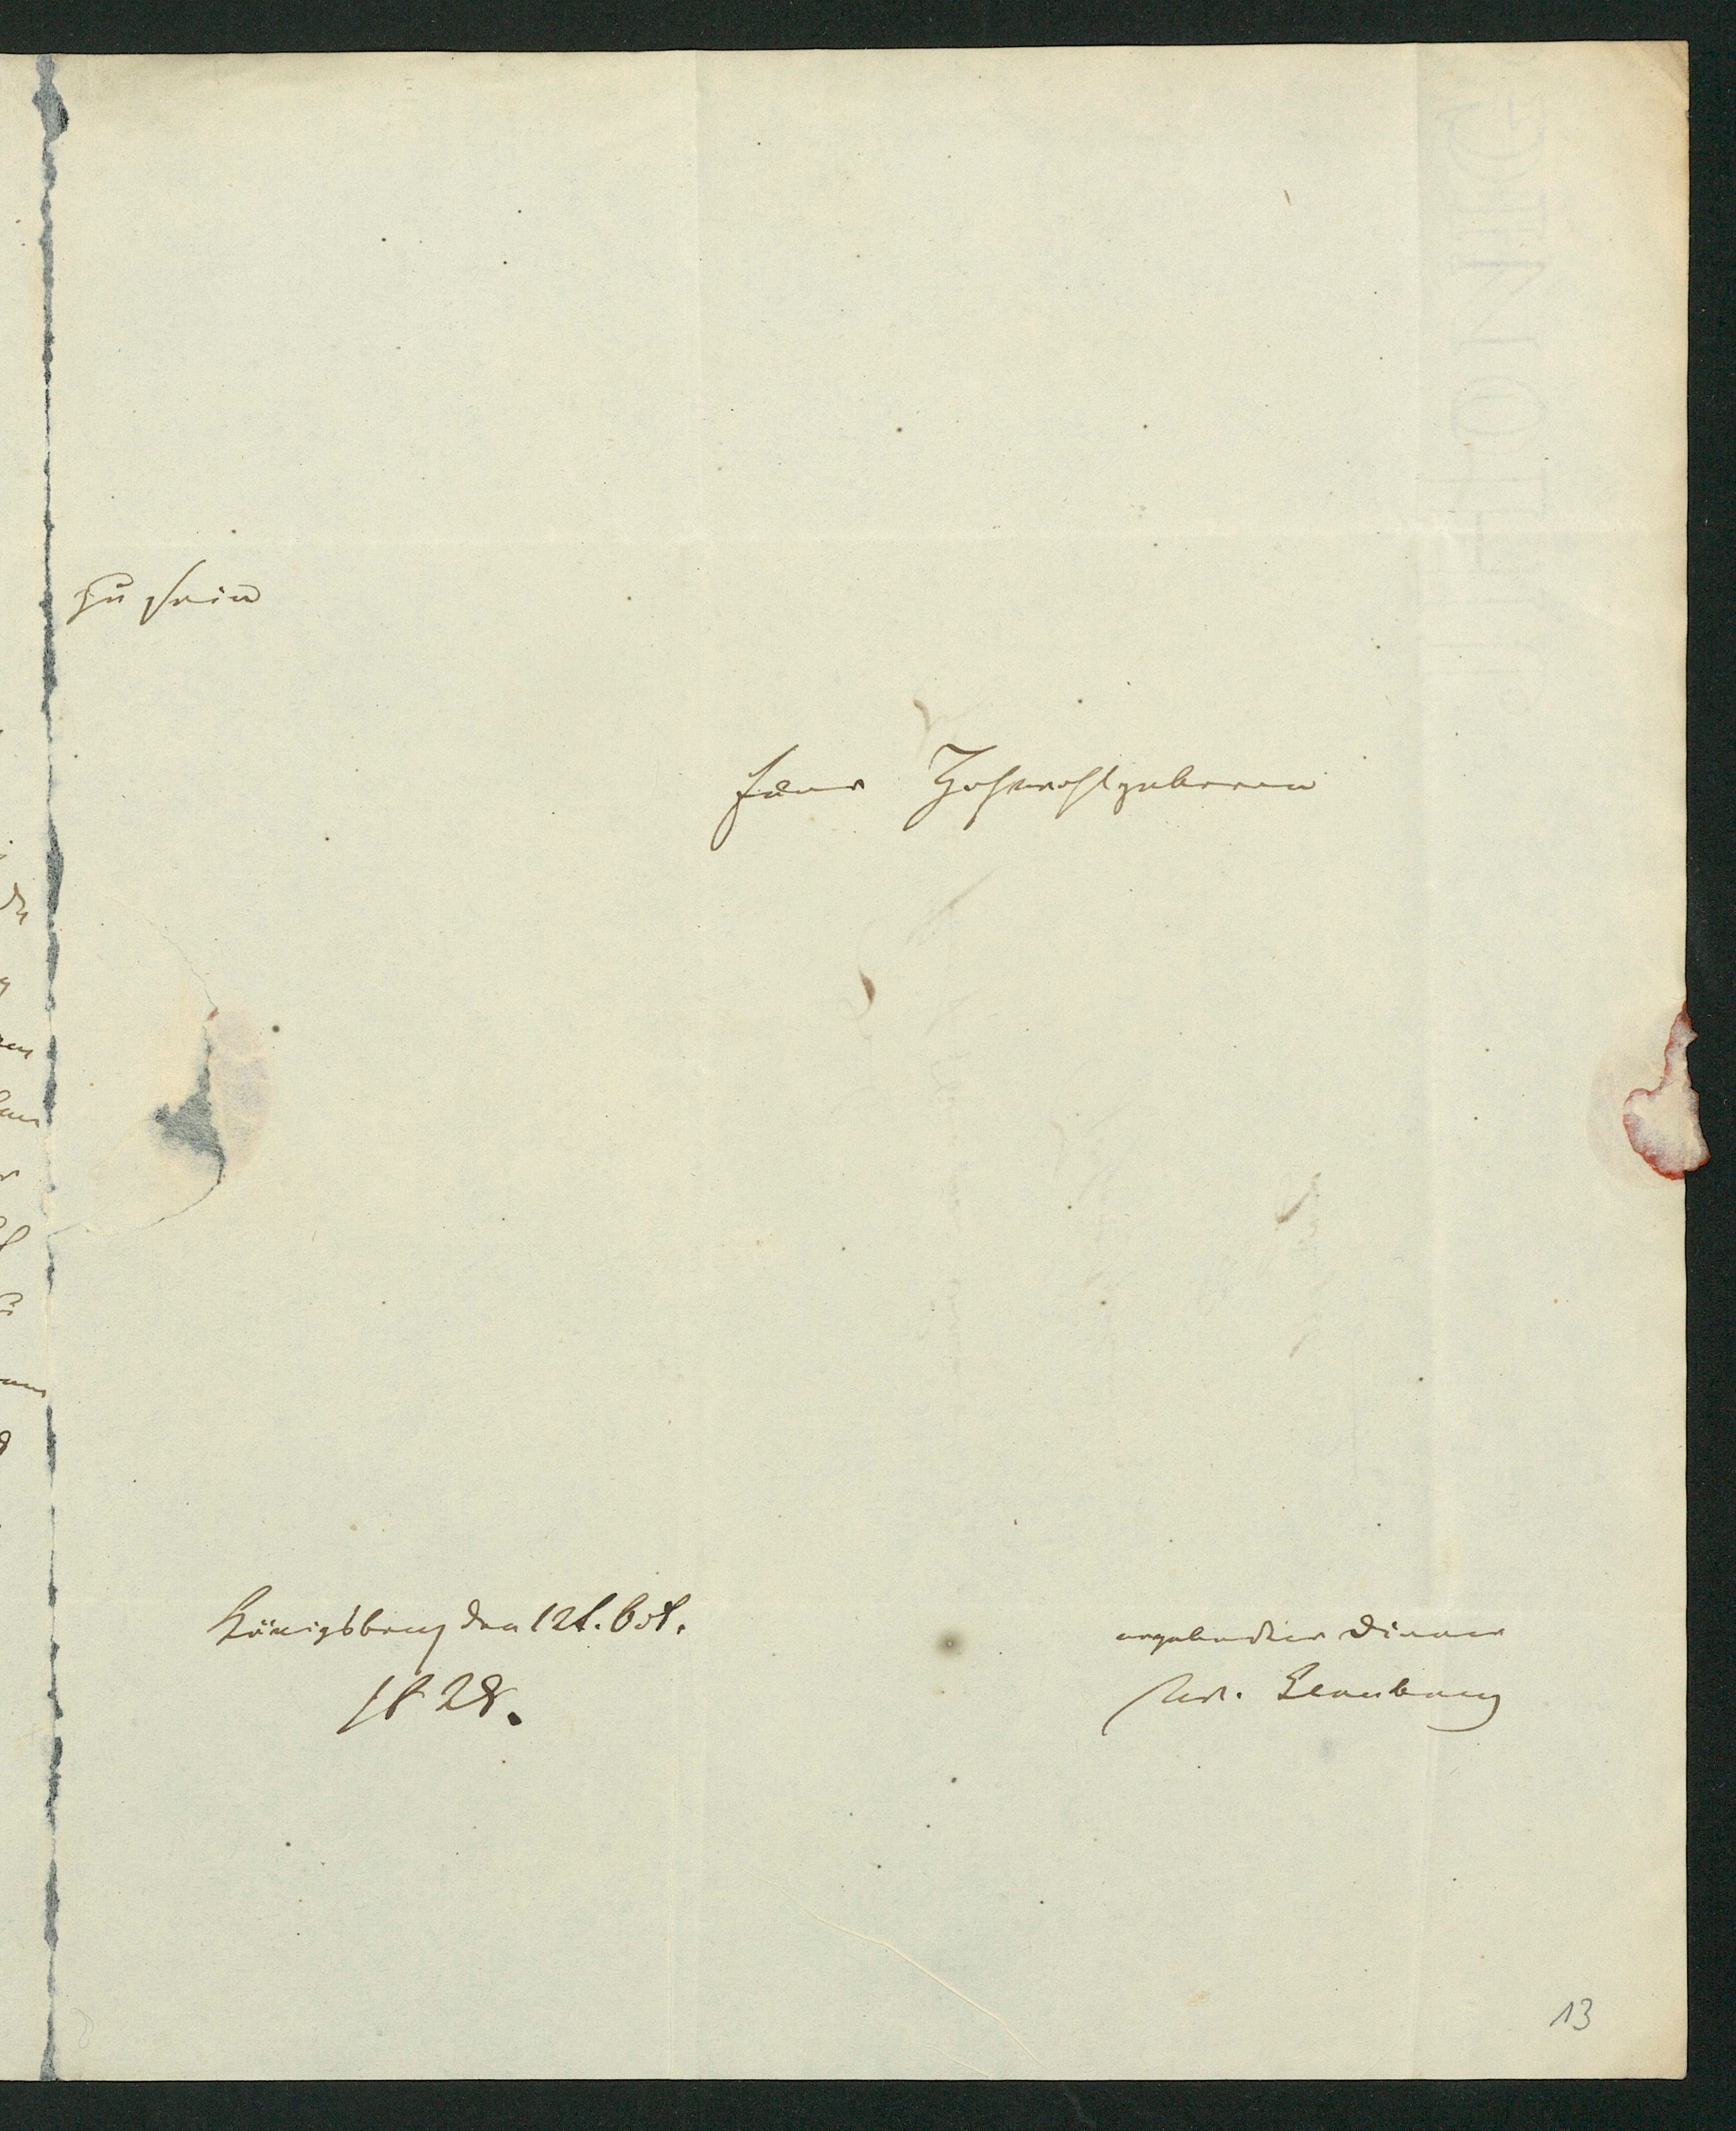 zu sein
Euer Hochwohlgeboren
Königsberg den 12t. Oct.
1828.
ergebenster Diener
13